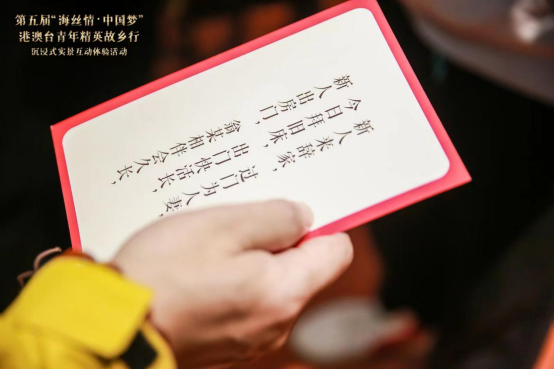 第五届“海丝情·中国梦”
港澳台青年精英故乡行
沉浸式实景互动体验活动
新人来辞家，过门为人妻
今日拜旧床，出门快活长，
新人出房门，翁某相伴会久长，